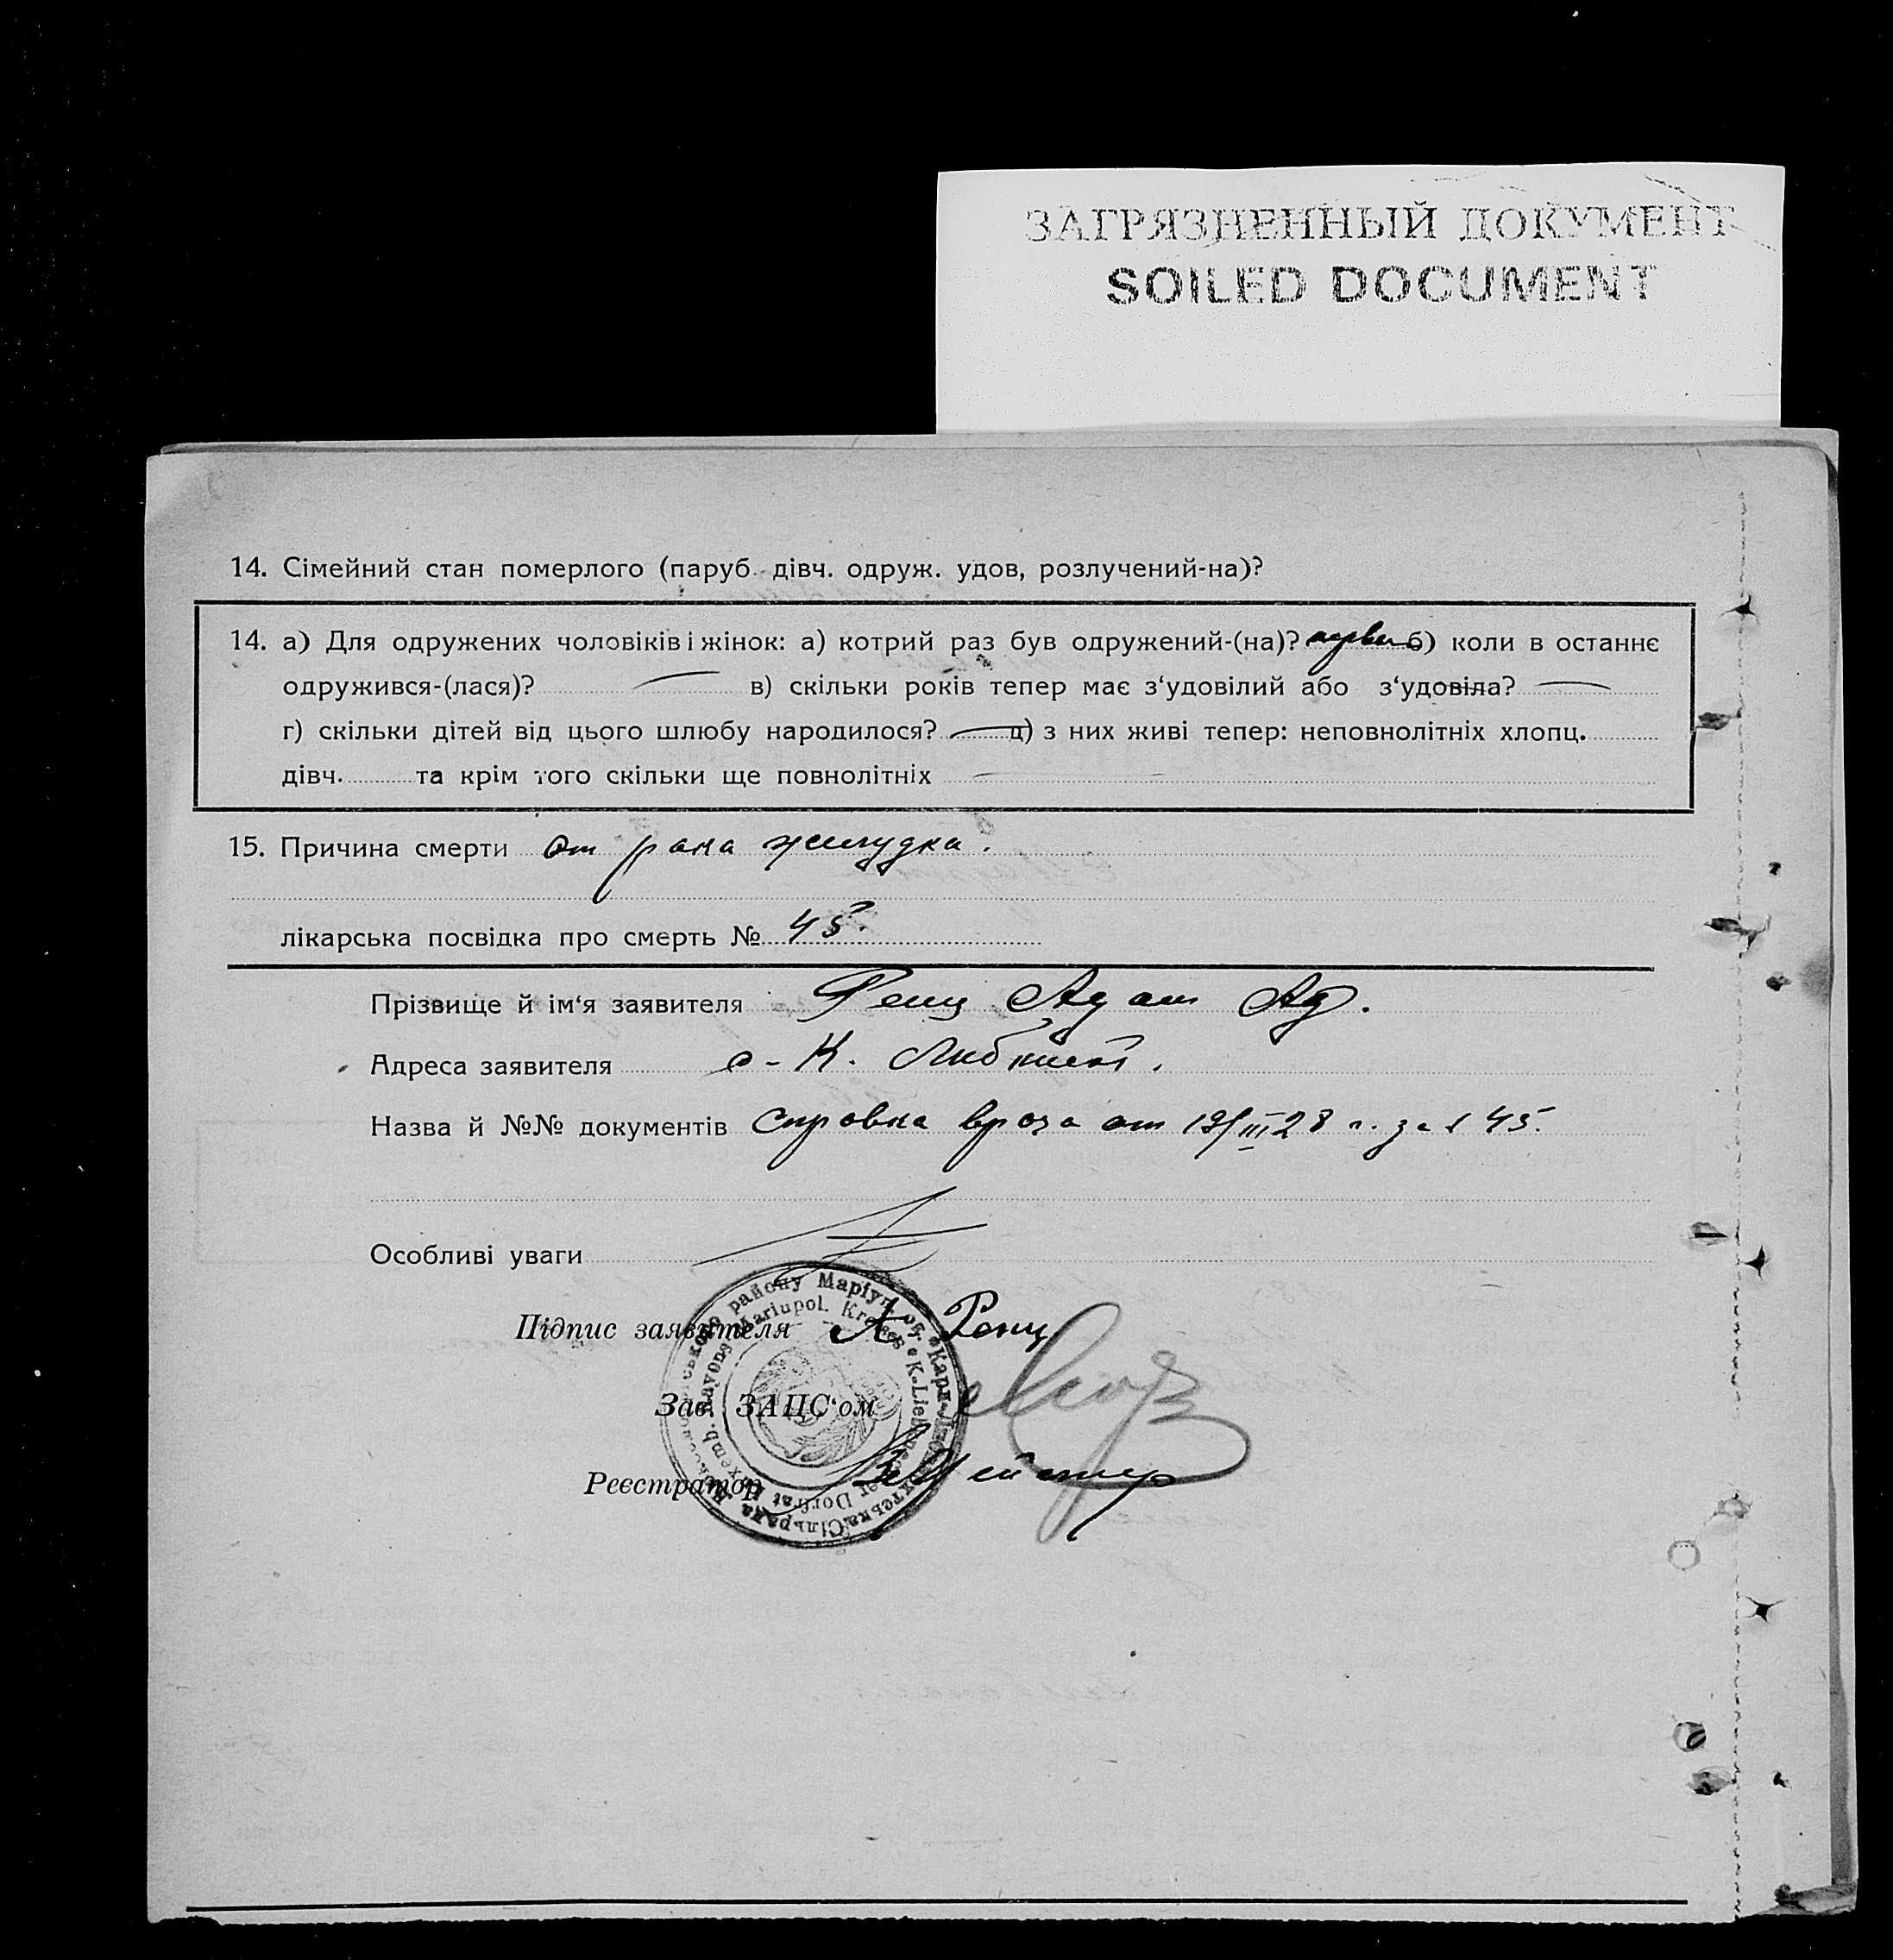 ЗАГРЯЗНЕННЫЙ ДОКУМЕНТ
SOILED DOCUMENT
14. Сімейний стан померлого (паруб. дівч. одруж. удов, розлучений-на)?
14. а) Для одружених чоловіків і жінок: а) котрий раз був одружений-(на)? б) коли в останнє
одружився-(лася)? — в) скільки років тепер має з‘удовілий або з‘удовіла? —
г) скільки дітей від цього шлюбу народилося? — д) з них живі тепер: неповнолітніх хлопц.
дівч. та крім того скільки ще повнолітніх —
15. Причина смерти от рака желудка.
лікарська посвідка про смерть № 45.
Прізвище й ім‘я заявителя Ренц Адам Ад.
Адреса заявителя с-К. Либкнехт.
Назва й №№ документів Справка врача от 19/III 28 г. за № 45.
Особливі уваги
Підпис заявителя А Ренц
Зав. ЗАПС‘ом
Реєстратор
району Маріуп. ок. Карл-Лібкнехтська Сільрада
Luxemb. Rayons Mariupol. Kreises K. Liebknechter Dorfrat